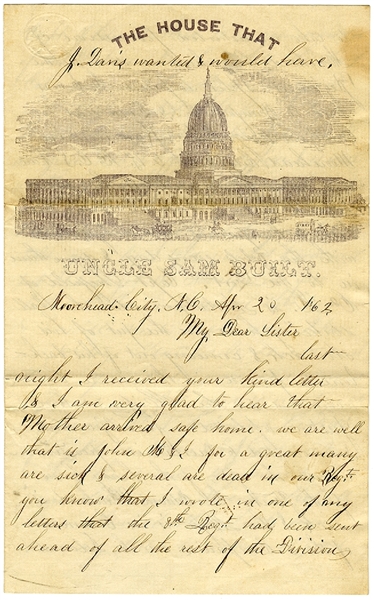 THE HOUSE THAT
J. Davis wanted & would have,
UNCLE SAM BUILT.
Moorehead City, N.C. Apr 20 /62
My Dear Sister
last
night I received your kind letter
& I am very glad to hear that
Mother arrived safe home. we are well
that is John H & I for a great many
are sick & several are dead in our Regt.
you know that I wrote in one of my
letters that the 8th Regt had been sent
ahead of all the rest of the Division,